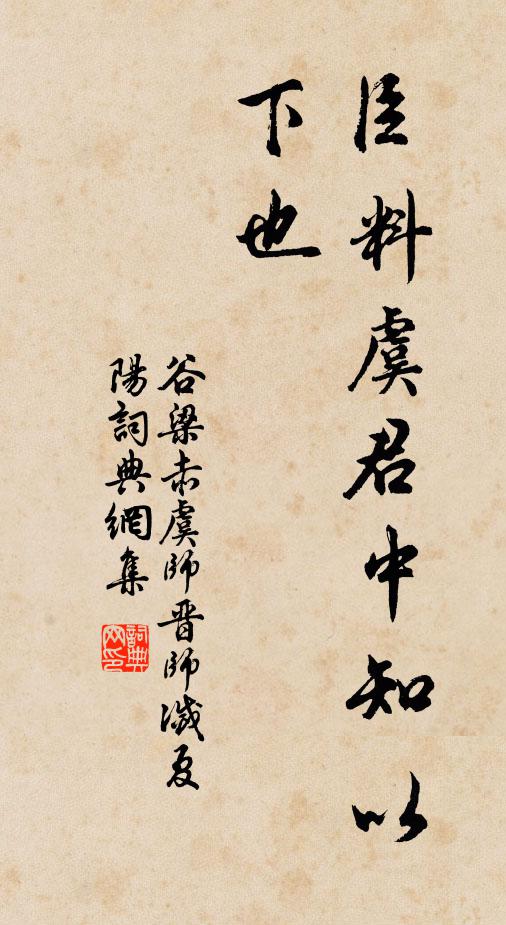 臣料虞君中知以
下也
谷梁赤虞師晋師滅夏
陽詞典網集
詞典
网印